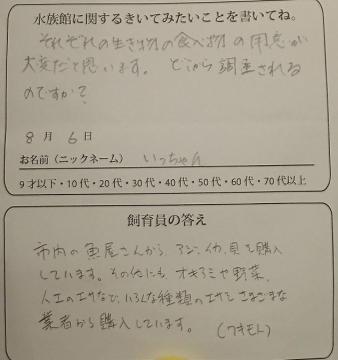 水族館に関するきいてみたいことを書いてね。
それぞれの生き物の食べ物の用意が
大変だと思います。どこから調達される
のですか？
8月6日
お名前（ニックネーム） いっちゃん
9才以下・10代・20代・30代・40代・50代・60代・70代以上
飼育員の答え
市内の魚屋さんから、アジ、イカ、貝を購入
しています。その他にも オキアミや野菜、
人工のエサなど、いろんな種類のエサを さまざまな
業者から購入しています。 （ワキモト）